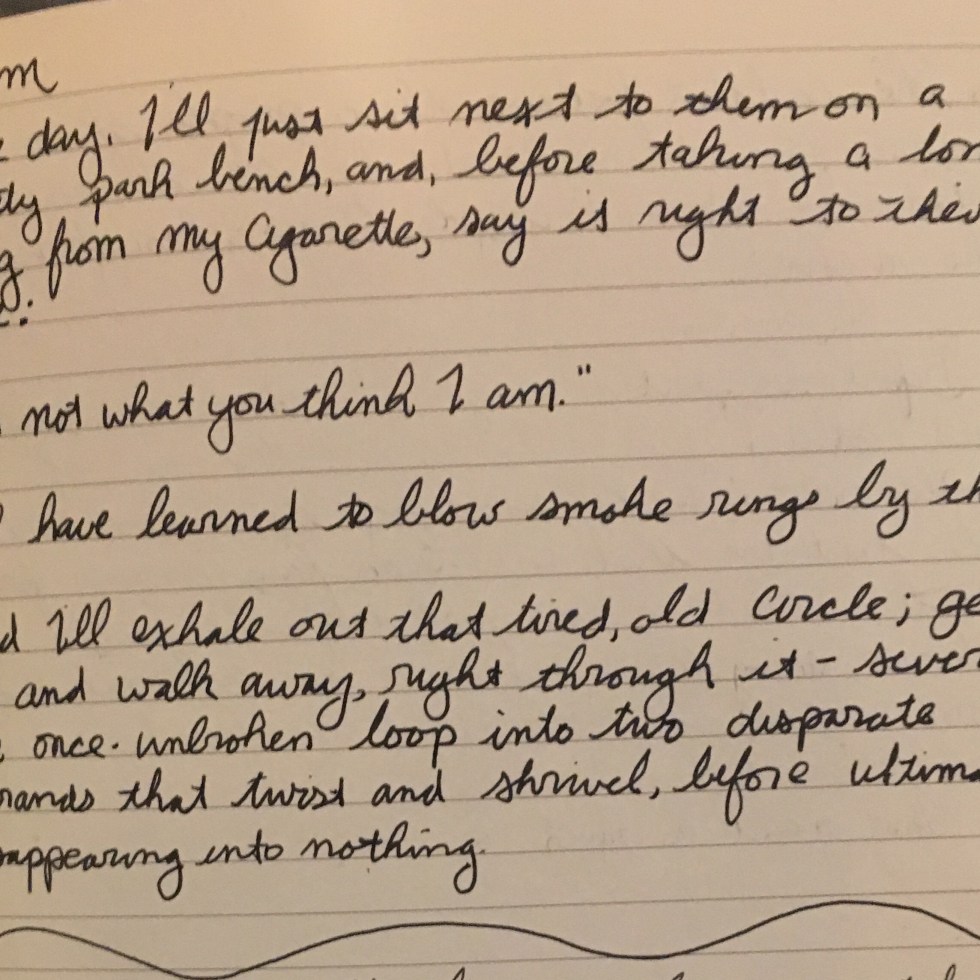 m
day. I'll just sit next to them on a
dy park bench, and, before taking a lon
g from my Cigarette, say is right to thei
:
not what you think I am."
have learned to blow smoke rings by th
d I'll exhale out that tired, old Circle; ge
and walk away, right through it - sever
once. unbroken loop into two disparate
rands that twist and shrivel, before ultima
appearing into nothing.